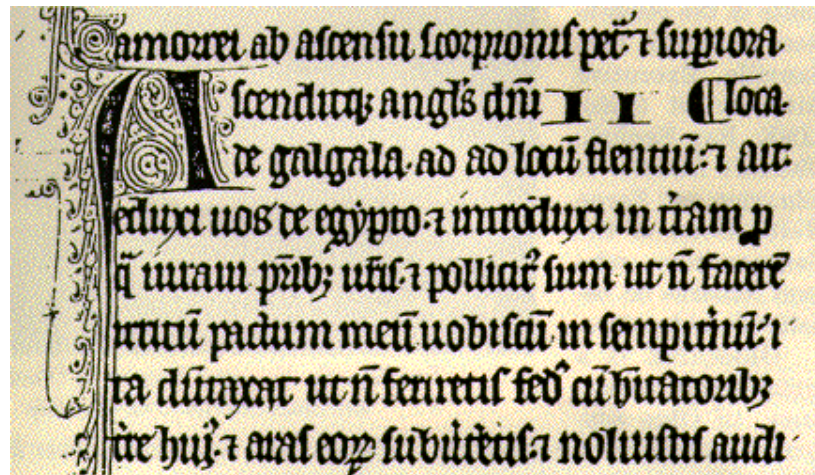 amorrei ab ascensu scorpionis pet᷑ ⁊ suꝑiora.
Ascenditqꝫ angl's dñi II ¶ loca.
de galgala. ad ad locũ flentiũ: ⁊ ait
eduxi uos de egypto. ⁊ introduxi in t̾ram ꝓ
q̃ iuraui pr̃ibꝫ ur̃is. ⁊ pollicitꝰ sum ut ñ facerẽ
irritũ pactum meũ uobiscũ in sempit̾nũ: i
ta dũtaxat ut ñ feriretis fed᷒ cũ hĩtatoribꝫ
t̾re huiꝰ. ⁊ aras eoꝝ subu̾t̾etis: ⁊ noluistis audi